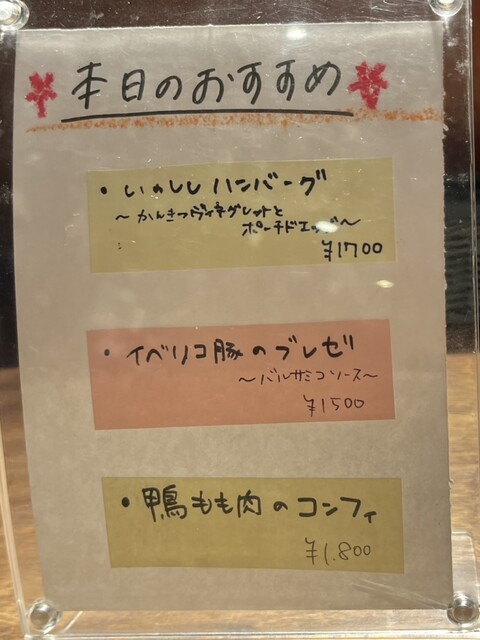 本日のおすすめ
・いのししハンバーグ
～かんきつヴィネグレットと
ポーチドエッグ～
¥1700
・イベリコ豚のブレゼ
～バルサミコソース～
¥1500
・鴨もも肉のコンフィ
¥1.800